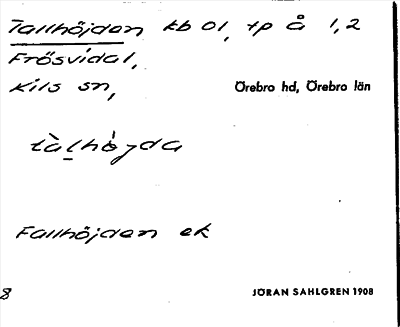 Tallhöjden kb Ol, tp å 1,2
Frösvidal,
Kils sn,
Örebro hd, Örebro län
tàl̲hò̧jda
Fallhöjden ek
8
JÖRAN SAHLGREN 1908